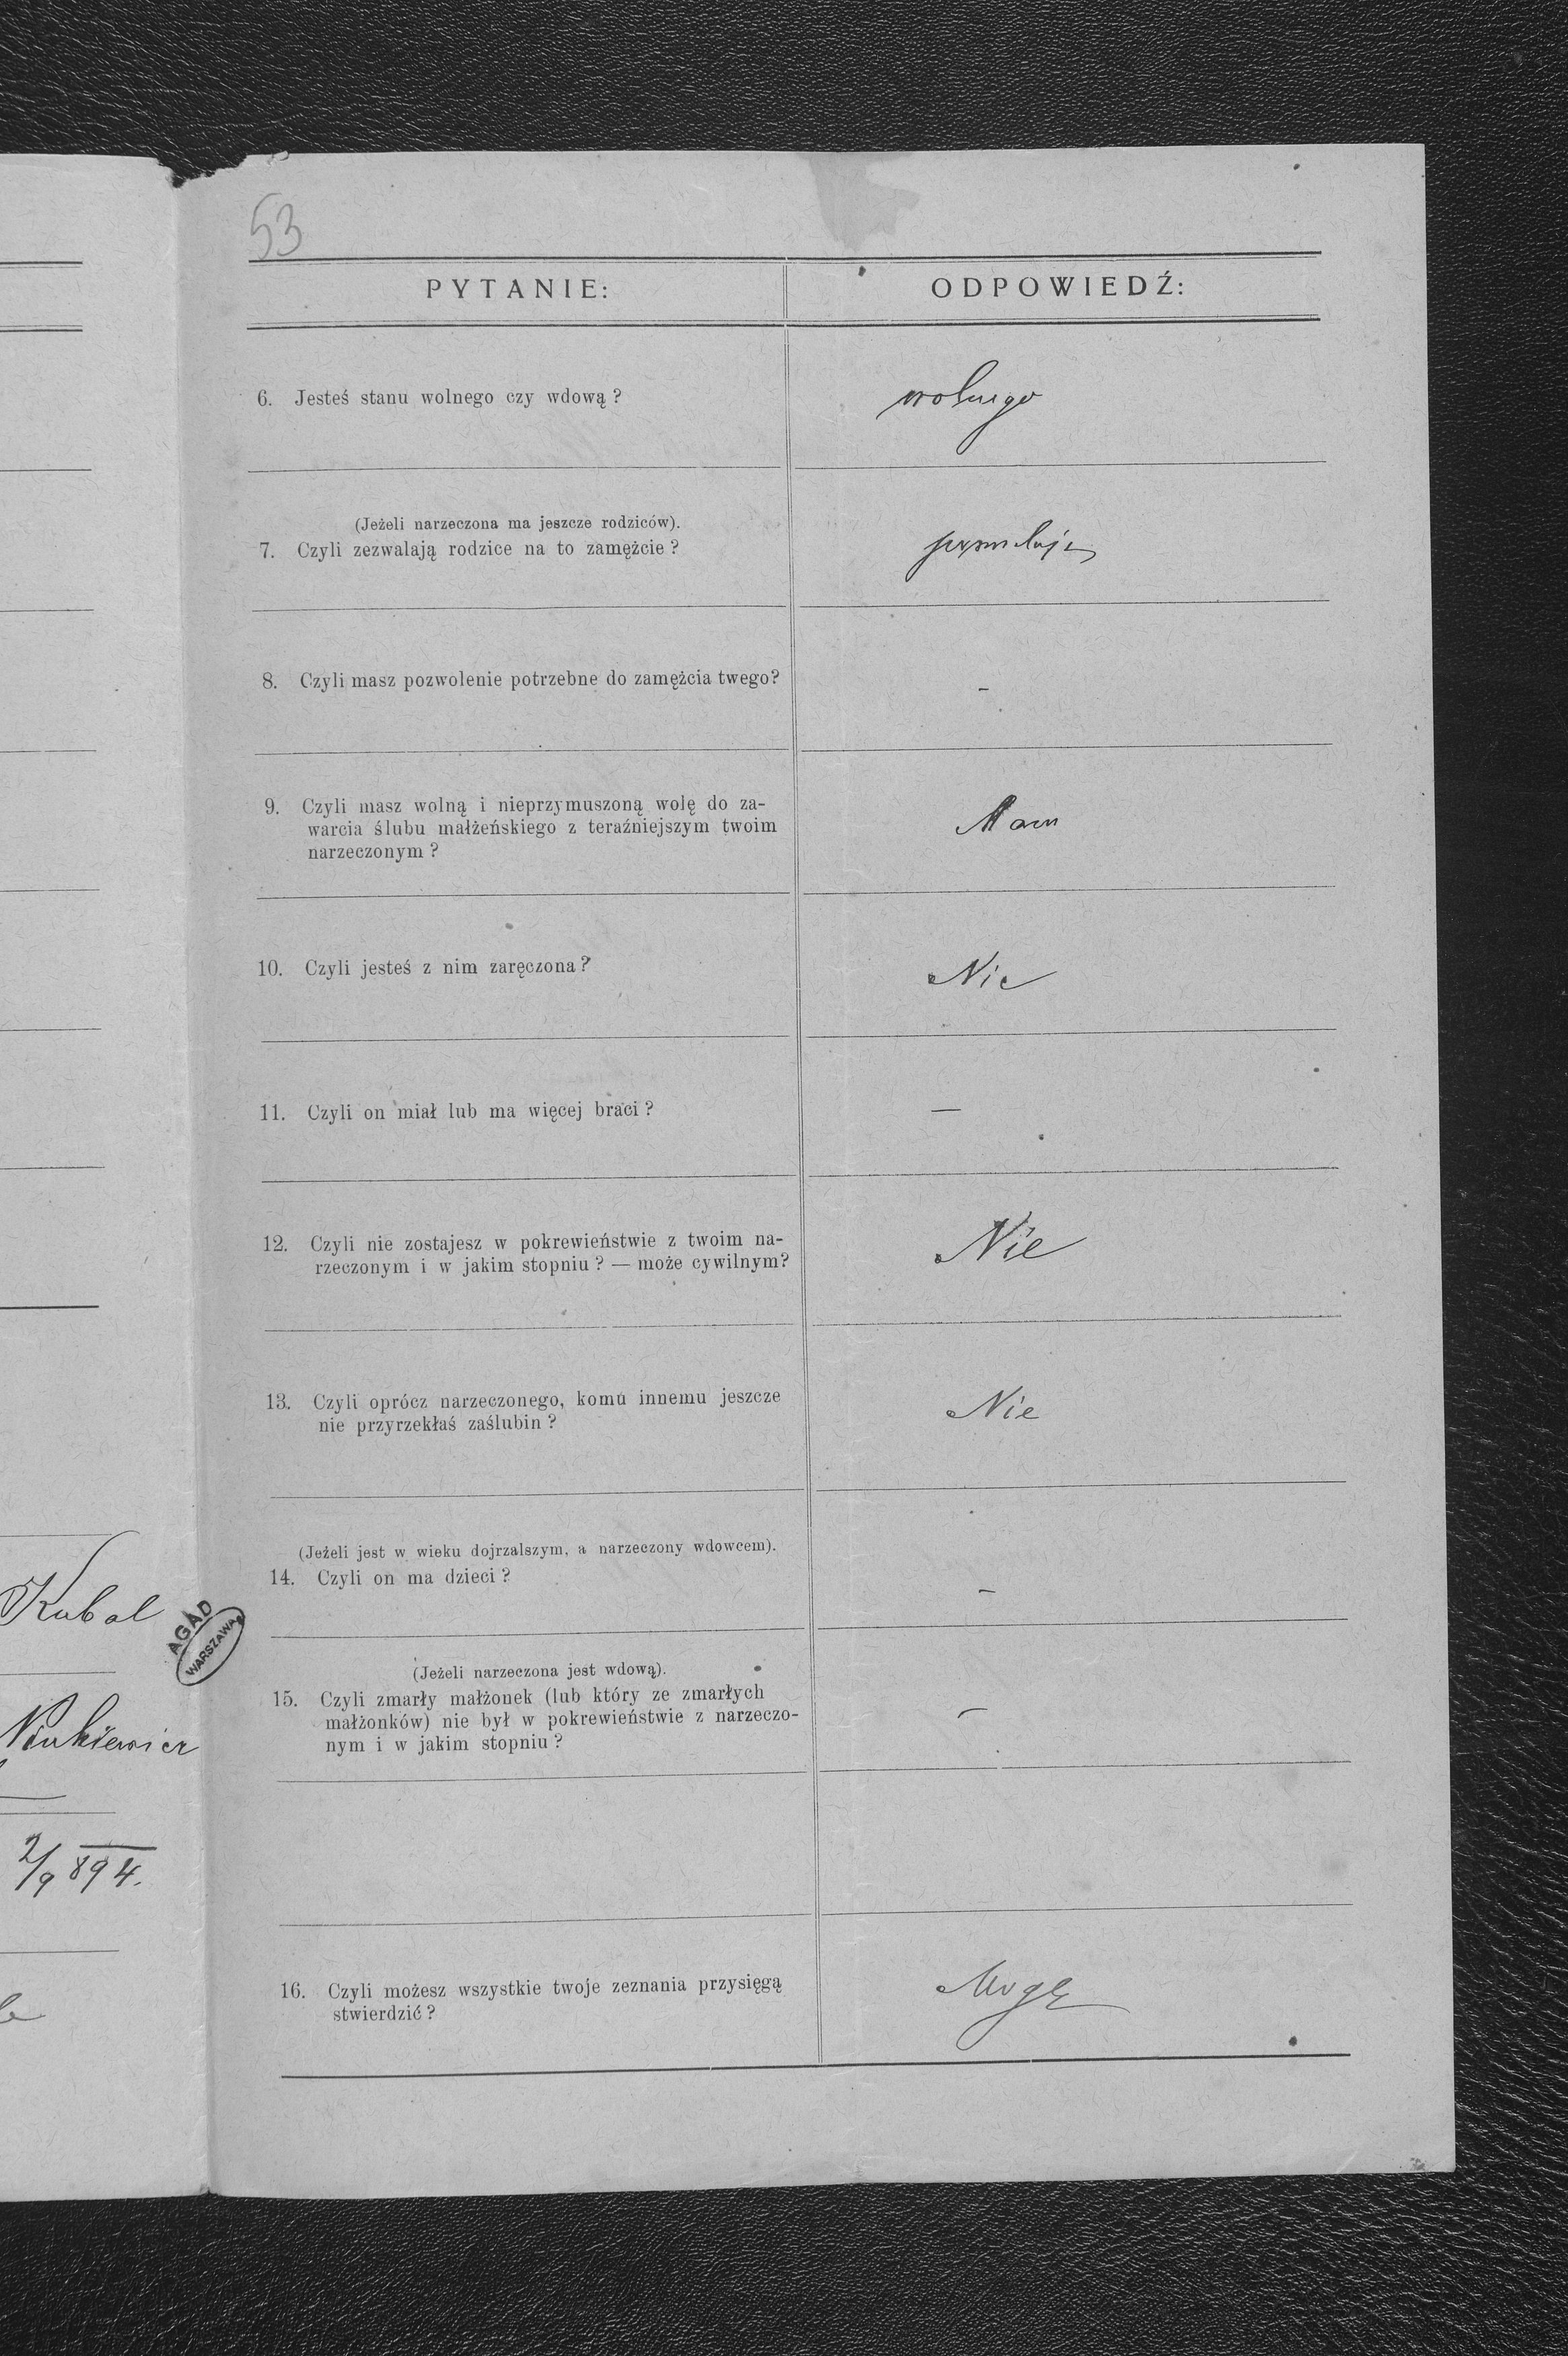 53
PYTANIE:
ODPOWIEDŹ:
6. Jesteś stanu wolnego czy wdową?
wolnego
(Jeżeli narzeczona ma jeszcze rodziców).
7. Czyli zezwalają rodzice na to zamężcie?
8. Czyli masz pozwolenie potrzebne do zamężcia twego?
-
9. Czyli masz wolną i nieprzymuszoną wolę do za-
warcia ślubu małżeńskiego z teraźniejszym twoim
narzeczonym?
Mam
10. Czyli jesteś z nim zaręczona?
Nie
11. Czyli on miał lub ma więcej braci?
—
12. Czyli nie zostajesz w pokrewieństwie z twoim na-
rzeczonym i w jakim stopniu? — może cywilnym?
Nie
13. Czyli oprócz narzeczonego, komu innemu jeszcze
nie przyrzekłaś zaślubin?
Nie
(Jeżeli jest w wieku dojrzalszym, a narzeczony wdowcem).
14. Czyli on ma dzieci?
-
(Jeżeli narzeczona jest wdową).
15. Czyli zmarły małżonek (lub który ze zmarłych
małżonków) nie był w pokrewieństwie z narzeczo-
nym i w jakim stopniu?
-
16. Czyli możesz wszystkie twoje zeznania przysięgą
stwierdzić?
Mogę
Kubal
AGAD
WARSZAWA
2/9 894.